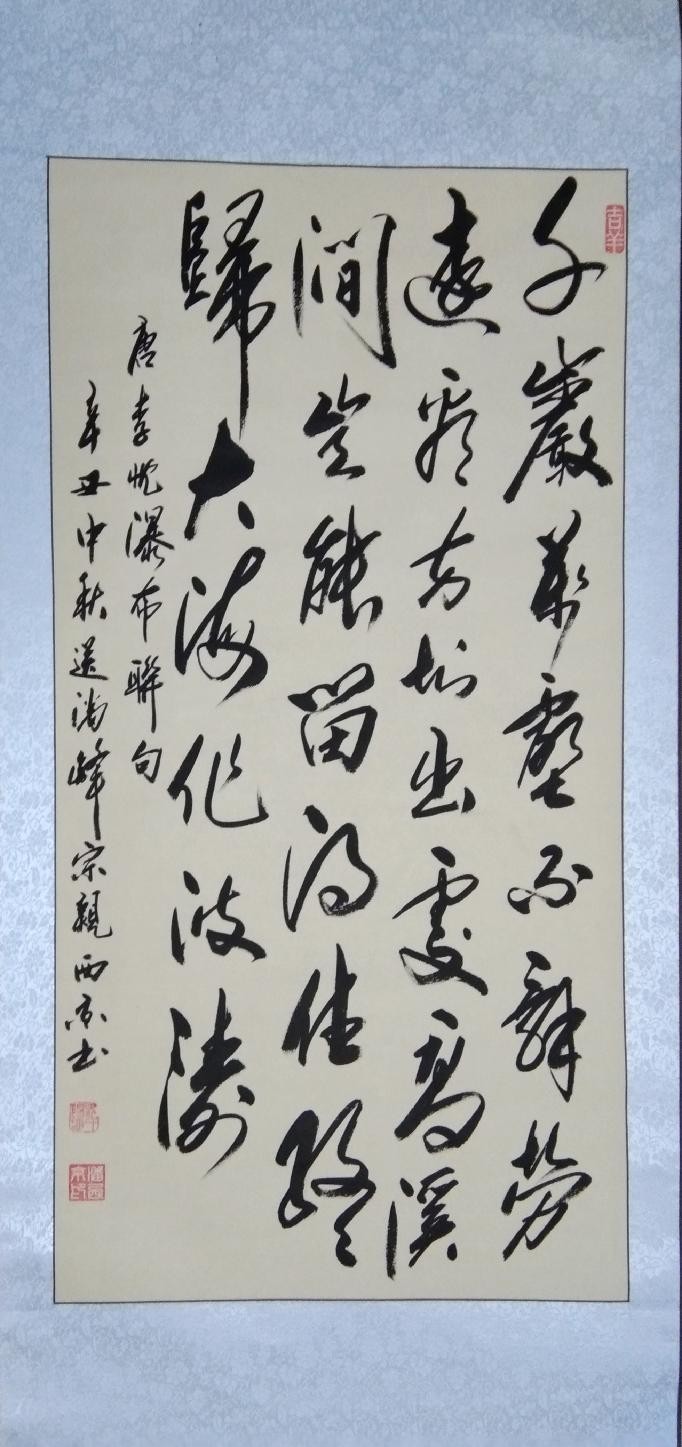 吉羊
千巖萬壑不辭勞
遠看方知出處高溪
澗豈能留得住終
歸大海作波濤
唐李忱瀑布聯句
辛丑中秋送峰宗親西京书